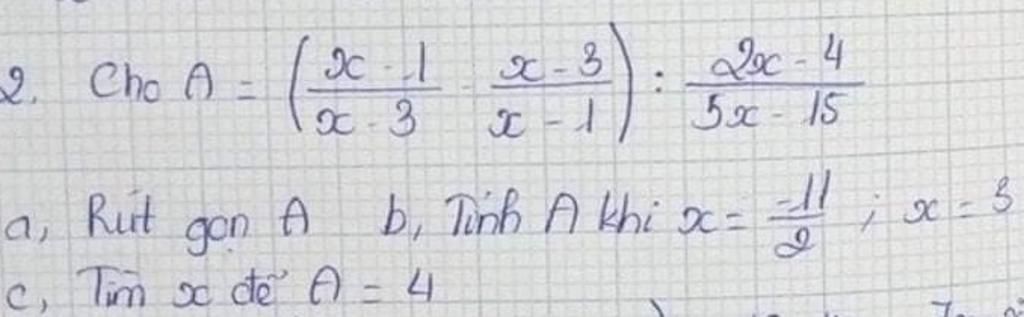 2. Cho A = (x - 1 / x - 3 - x - 3 / x - 1) : 2x - 4 / 5x - 15
a, Rút gọn A b, Tính A khi x = -11/2 ; x = 3
c, Tìm x để A = 4